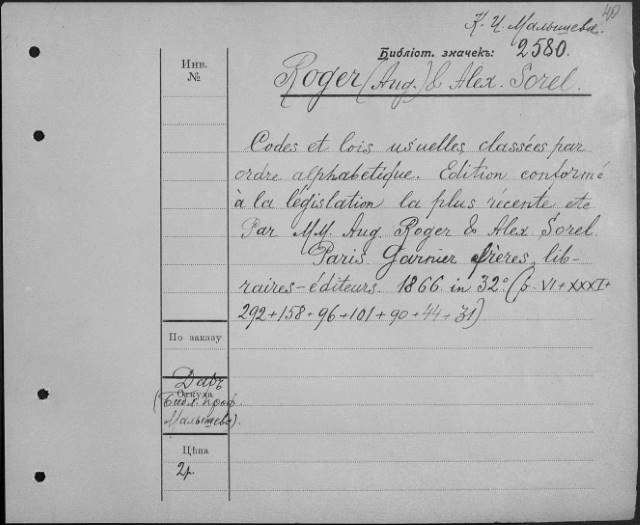 40
К. И. Малышева.
Библіот. значекъ: 2580.
Инв.
№
Roger (Aug.) & Alex. Sorel.
Codes et lois usuelles classées par
ordre alphabetique. Edition conformé
à la législation la plus récente etc
Par MM. Aug. Roger & Alex Sorel
Paris Garnier frères, lib-
raires-éditeurs 1866 in 32° (p. VI+XXXI+
292+158+96+101+90+44+31)
По заказу
Даръ
Откуда
(Библ. проф.
Малышева).
Цѣна
2р.